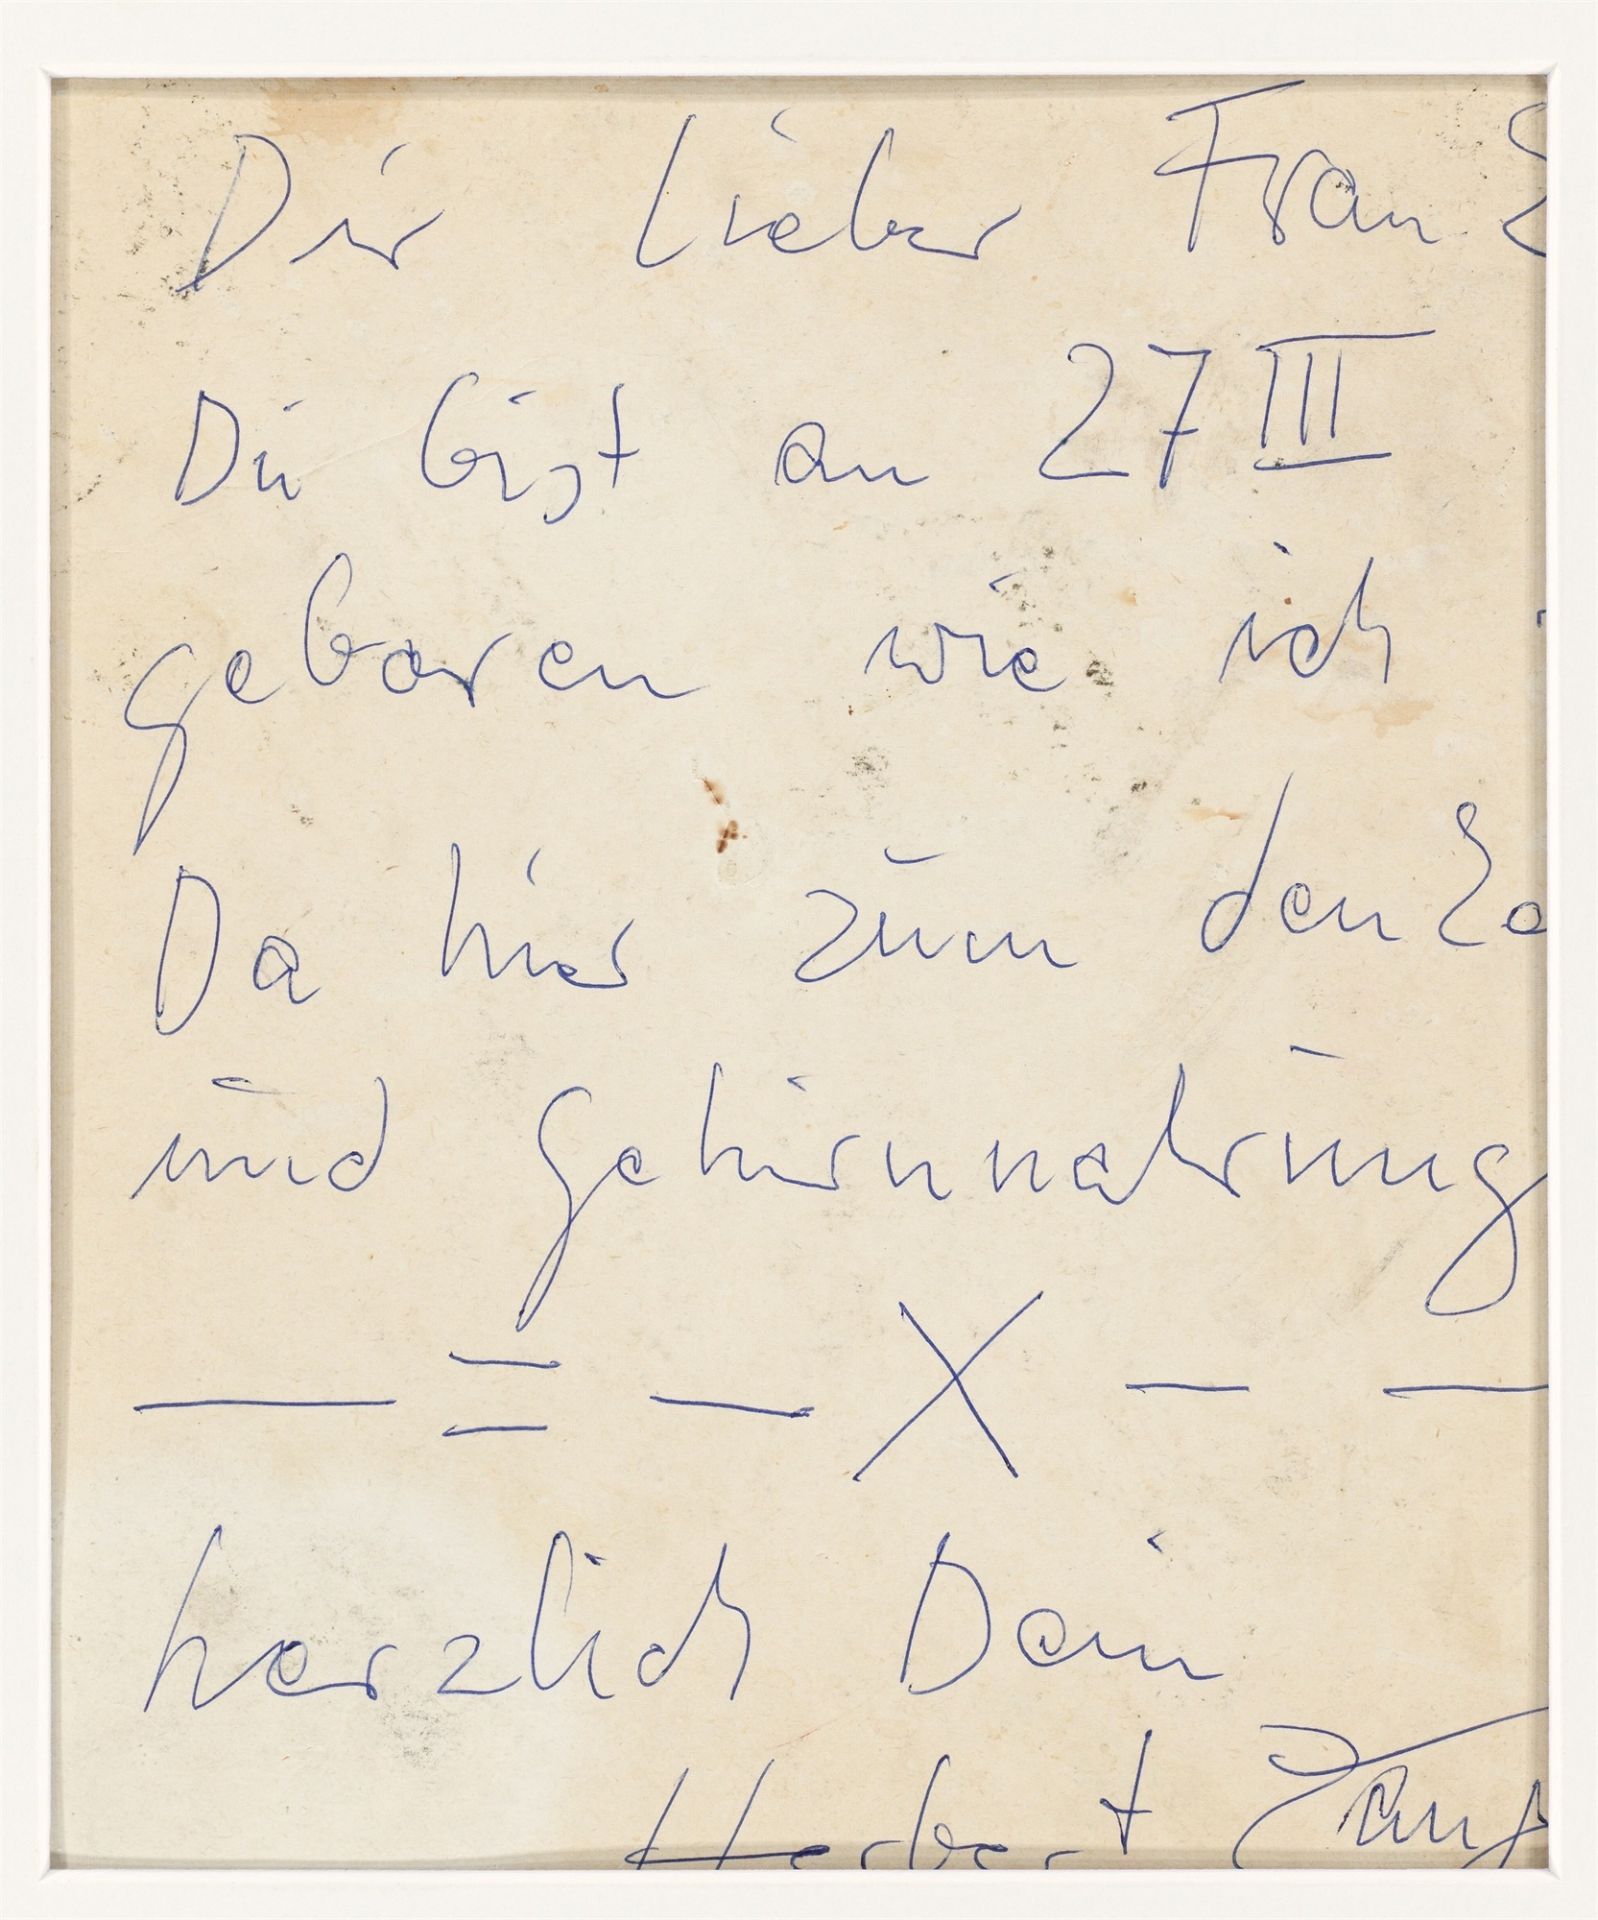 Dir lieber Franz
Du bist am 27 III
geboren wie ich
Da hier zum
und gehirnnahrung
— = — X — —
herzlich Dein
Herbert Zang